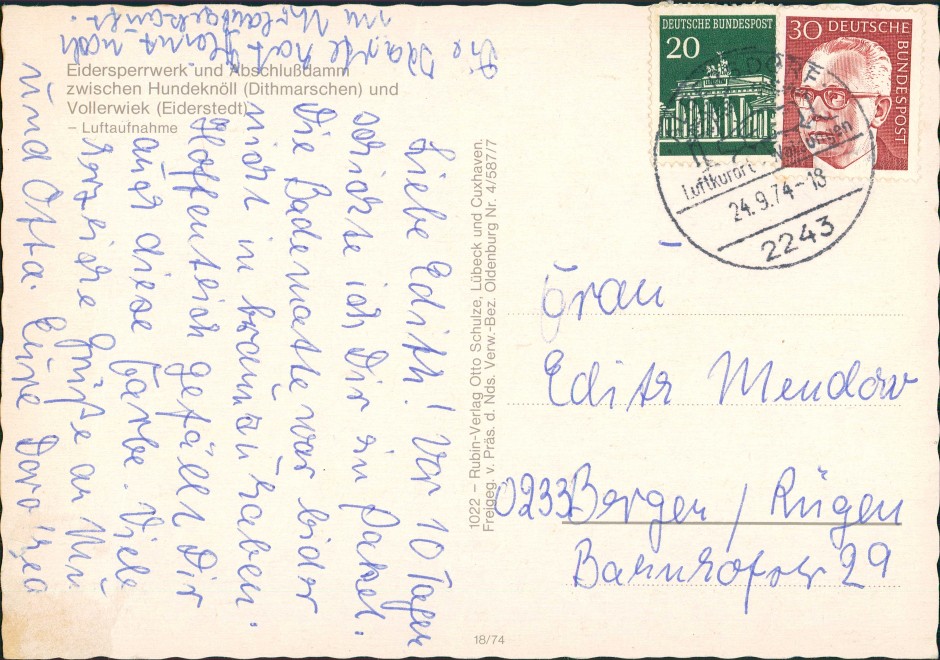 Eidersperrwerk und Abschlußdamm
zwischen Hundeknöll (Dithmarschen) und
Vollerwiek (Eiderstedt)
– Luftaufnahme
Liebe Edith! Vor 10 Tagen
schickte ich Dir ein Paket.
Die Badematte war leider
nicht in braun zu haben.
Hoffentlich gefällt Dir
auch diese Farbe. Viele
herzliche Grüße an
und Otta. Eure Dorothea
Die hat Horst noch
im Urlaub gekauft.
1022 – Rubin-Verlag Otto Schulze, Lübeck und Cuxhaven.
Freigeg. v. Präs. d. Nds. Verw.-Bez. Oldenburg Nr. 4/587/7
18/74
DEUTSCHE BUNDESPOST
20
30 DEUTSCHE
BUNDESPOST
Luftkurort
24.9.74-18
2243
Frau
Edith Mendow
0233 Bergen / Rügen
Bahnhofstr 29